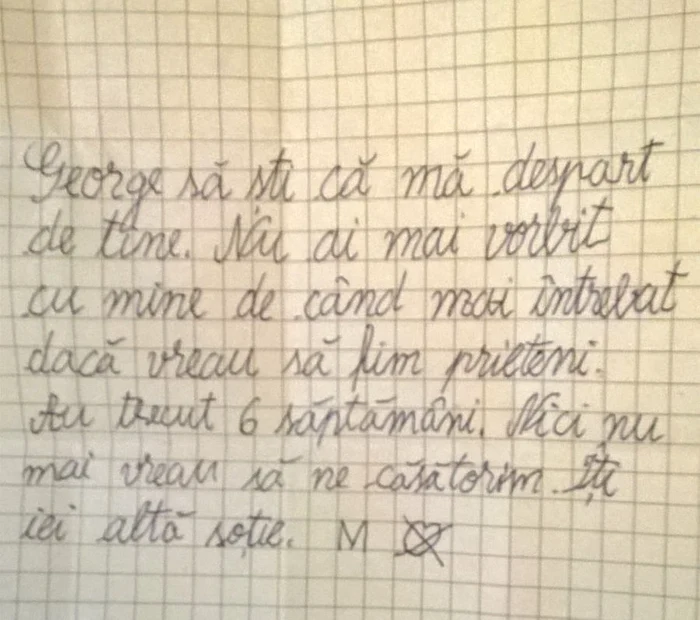 George să sti că mă despart
de tine. Nu ai mai vorbit
cu mine de când mai întrebat
dacă vreau să fim prieteni.
Au trecut 6 săptămâni. Nici nu
mai vreau să ne căsătorim. Iți
iei altă soție. M